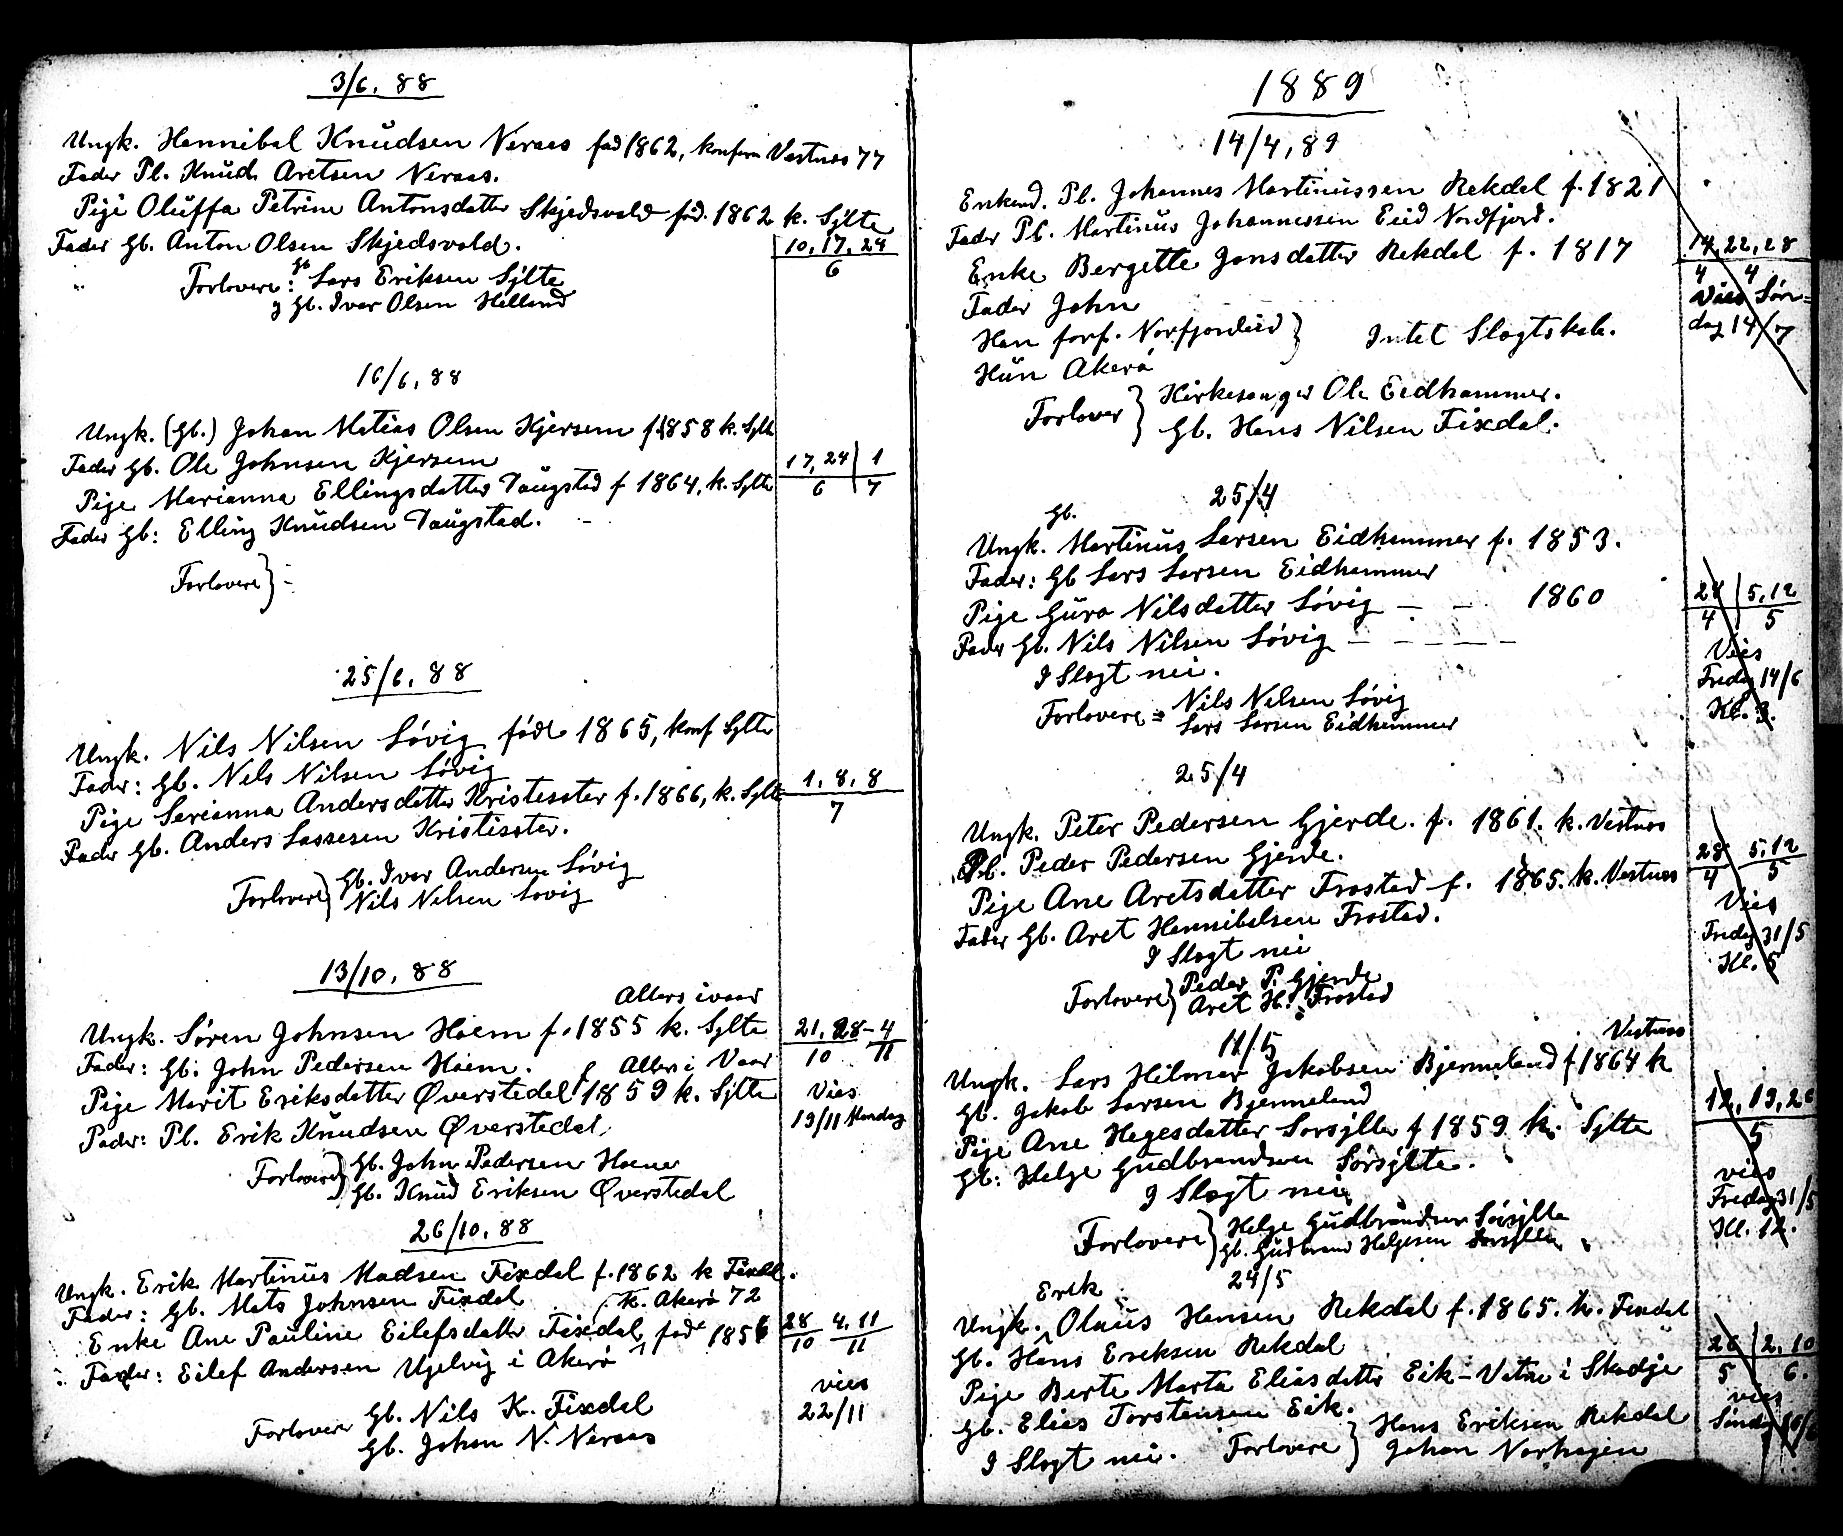 3/6, 88
Ungk. Hannibal Knudsen Neraas fød 1862, konfirm Vestnæs 77
Fader Pl. Knud Aretsen Neraas.
Pige Oluffa Petrine Antonsdatter Skjedsvold fød. 1862 k. Sylte
Fader Gb. Anton Olsen Skjedsvold.
10, 17, 24
6
Forlovere: Gb Lars Eriksen Sylte
og Gb. Ivar Olsen Helland
16/6, 88
Ungk. (Gb.) Johan Matias Olsen Kjersem f. 1858 k. Sylte
Fader Gb. Ole Johnsen Kjersem
Pige Marianna Ellingsdatter Daugstad f 1864, k. Sylte
17, 24 | 1
6 | 7
Fader Gb: Elling Knudsen Daugstad. -
Forlovere } -
25/6, 88
Ungk. Nils Nilsen Løvig født 1865, konf Sylte
Fader: Gb. Nils Nilsen Løvig
Pige Serianna Andersdatter Kristisæter f. 1866, k. Sylte
1, 8, 8
7
Fader Gb. Anders Lassesen Kristisæter.
Forlovere } Gb. Ivar Andersen Løvig
Nils Nilsen Løvig
13/10, 88
Alters ivaar
Ungk. Søren Johnsen Hoem f. 1855 k. Sylte
21, 28 - 4
10 11
Fader: Gb. John Pedersen Hoem. Alters i Vaar
Pige Marit Eriksdatter Øverstedal f 1859 k. Sylte
Vies
19/11 Mandag
Fader: Pl. Erik Knudsen Øverstedal.
Forlovere } Gb. John Pedersen Hoem
Gb. Knud Eriksen Øverstedal
26/10, 88
Ungk. Erik Martinus Madsen Fixdal f. 1862 k Fixdal.
Fader: Gb. Mats Johnsen Fixdal (k. Akerø 72
Enke Ane Pauline Eilefsdatter Fixdal, født 1856
28 4, 11
10 11
Fader: Eilef Andersen Ugelvig i Akerø
vies
22/11
Forlovere Gb. Nils K. Fixdal
Gb. Johan N. Neraas
1889
14/4, 89
Enkend. Pl. Johannes Martinussen Rekdal f. 1821
Fader Pl. Martinus Johannessen Eid Nordfjord.
Enke Bergette Jonsdatter Rekdal f. 1817
14, 22, 28
4 4
Fader John
Vies Søn=
dag 14/7
Han forf. Norfjordeid } Intet Slægtskab.
Hun Akerø
Forlover } Kirkesanger Ole Eidhammer.
Gb. Hans Nilsen Fixdal.
25/4
Gb.
Ungk. Martinus Larsen Eidhammer f. 1853.
Fader: Gb Lars Larsen Eidhammer
Pige Guro Nilsdatter Løvig - - 1860
28 | 5, 12
4 | 5
Fader Gb. Nils Nilsen Løvig - - - -
I Slægt nei.
Vies
Fredag 14/6
Kl. 3.
Forlovere = Nils Nilsen Løvig
Lars Larsen Eidhammer
25/4
Ungk. Peter Pedersen Gjerde. f. 1861. k. Vestnæs
Pl. Peder Pedersen Gjerde.
Pige Ane Aretsdatter Frostad f. 1865. k. Vestnæs
28 5, 12
4 5
Fader Gb. Aret Hannibalsen Frostad.
I Slægt nei
Vies
Fredag 31/5
Kl. 5
Forlovere } Peder P. Gjerde
Aret H. Frostad
11/5
Vestnæs
Ungk. Lars Hilmar Jakobsen Bjermeland f 1864 k
Gb. Jakob Larsen Bjermeland
Pige Ane Hegesdatter Sørsylte f 1859 k. Sylte
12, 19, 26
5
Gb: Helge Gudbrandsen Sørsylte.
I Slægt nei
vies
Fredag 31/5
Kl. 12.
Forlovere } Helge Gudbrandsen Sørsylte
Gb. Gudbrand Helgesen Sørsylte
24/5
Erik
Ungk. Olaus Hansen Rekdal f. 1865. k. Fixdal
Gb. Hans Eriksen Rekdal
Pige Berte Marta Eliasdatter Eik - Vatne i Skodje
26 | 2, 10
5 | 6.
Gb. Elias Torstensen Eik.
vies
Søndag
I Slægt nei. Forlovere } Hans Eriksen Rekdal
Johan Norhagen